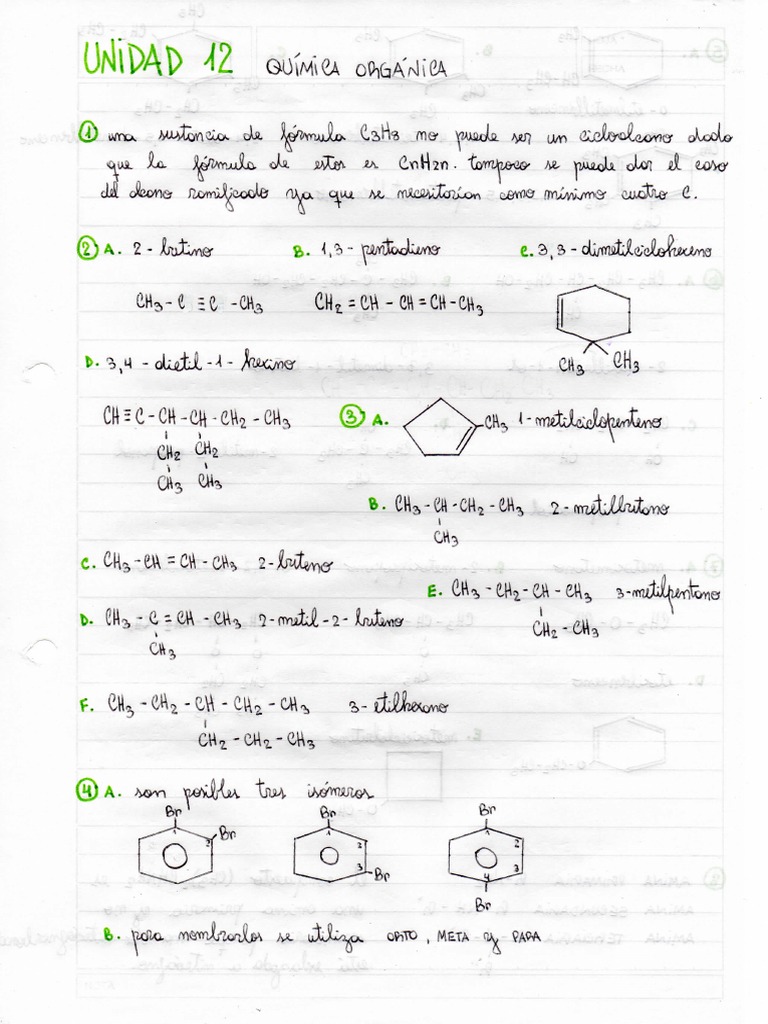 UNIDAD 12 QUÍMICA ORGÁNICA
1 una sustancia de fórmula C3H3 no puede ser un cicloalcano dado
que la fórmula de estos es CnH2n. tampoco se puede dar el caso
del alcano ramificado ya que se necesitarían como mínimo cuatro C.
2 A. 2-butino B. 1,3-pentadieno C. 3,3-dimetilciclohexeno
CH3-C≡C-CH3 CH2=CH-CH=CH-CH3
CH3 CH3
D. 3,4-dietil-1-hexino
CH≡C-CH-CH-CH2-CH3
CH2 CH2
CH3 CH3
3 A. CH3 1-metilciclopenteno
B. CH3-CH-CH2-CH3 2-metilbutano
CH3
C. CH3-CH=CH-CH3 2-buteno
D. CH3-C=CH-CH3 2-metil-2-buteno
CH3
E. CH3-CH2-CH-CH3 3-metilpentano
CH2-CH3
F. CH3-CH2-CH-CH2-CH3 3-etilhexano
CH2-CH2-CH3
4 A. son posibles tres isómeros
Br Br Br
1 2 Br 1 2 1 2
3 Br 3
4
Br
B. para nombrarlos se utiliza ORTO, META y PARA